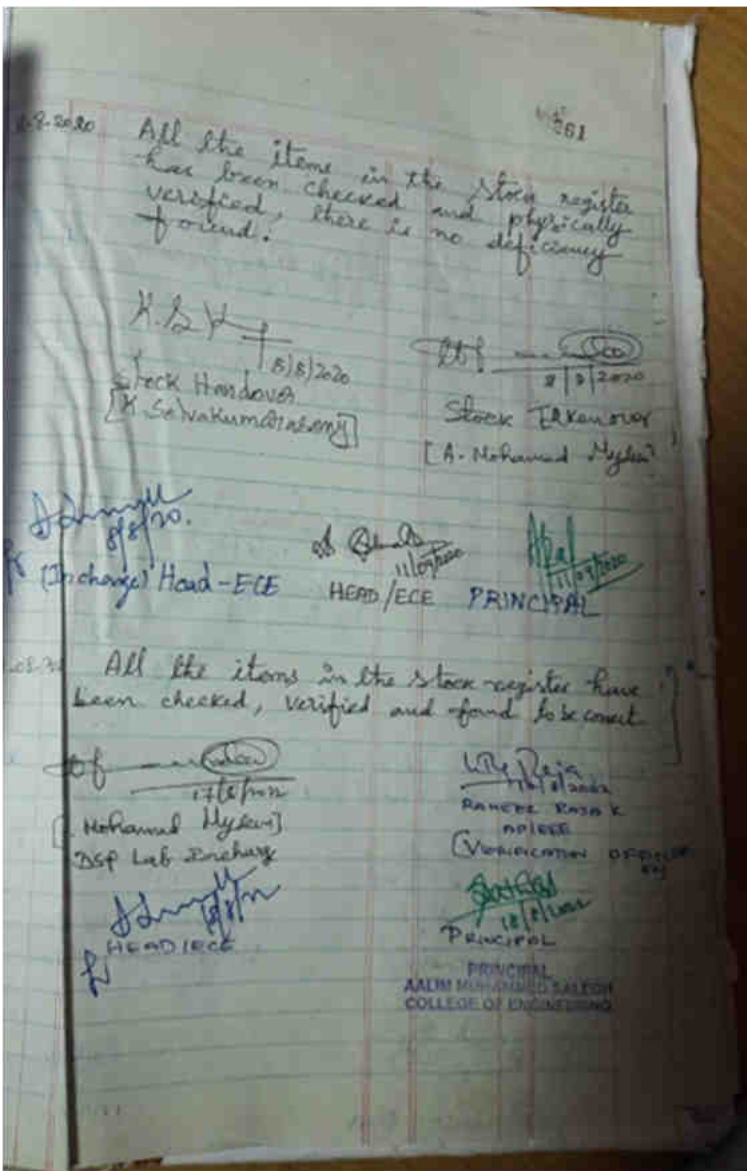 261
8.2020 All the items in the stock register
has been checked and physically
verified, there is no deficiency
found.
8/8/2020
Stock Handover
[K. Selvakumarasamy]
8/8/2020
Stock Takenover
[A. Mohamed Mydeen]
8/8/20.
(Incharge) Head-ECE
11/09/2020
HEAD/ECE
11/09/2020
PRINCIPAL
All the items in the stock register have
been checked, verified and found to be correct
17/8/2022
Mohamed Mydeen]
DSP Lab Incharge
18/8/2022
RAHEEL RAJA K
AP/EEE
(VERIFICATION OFFICER
18/8/22
HEAD/ECE
18/8/2022
PRINCIPAL
PRINCIPAL
AALIM MUHAMMED SALEGH
COLLEGE OF ENGINEERING